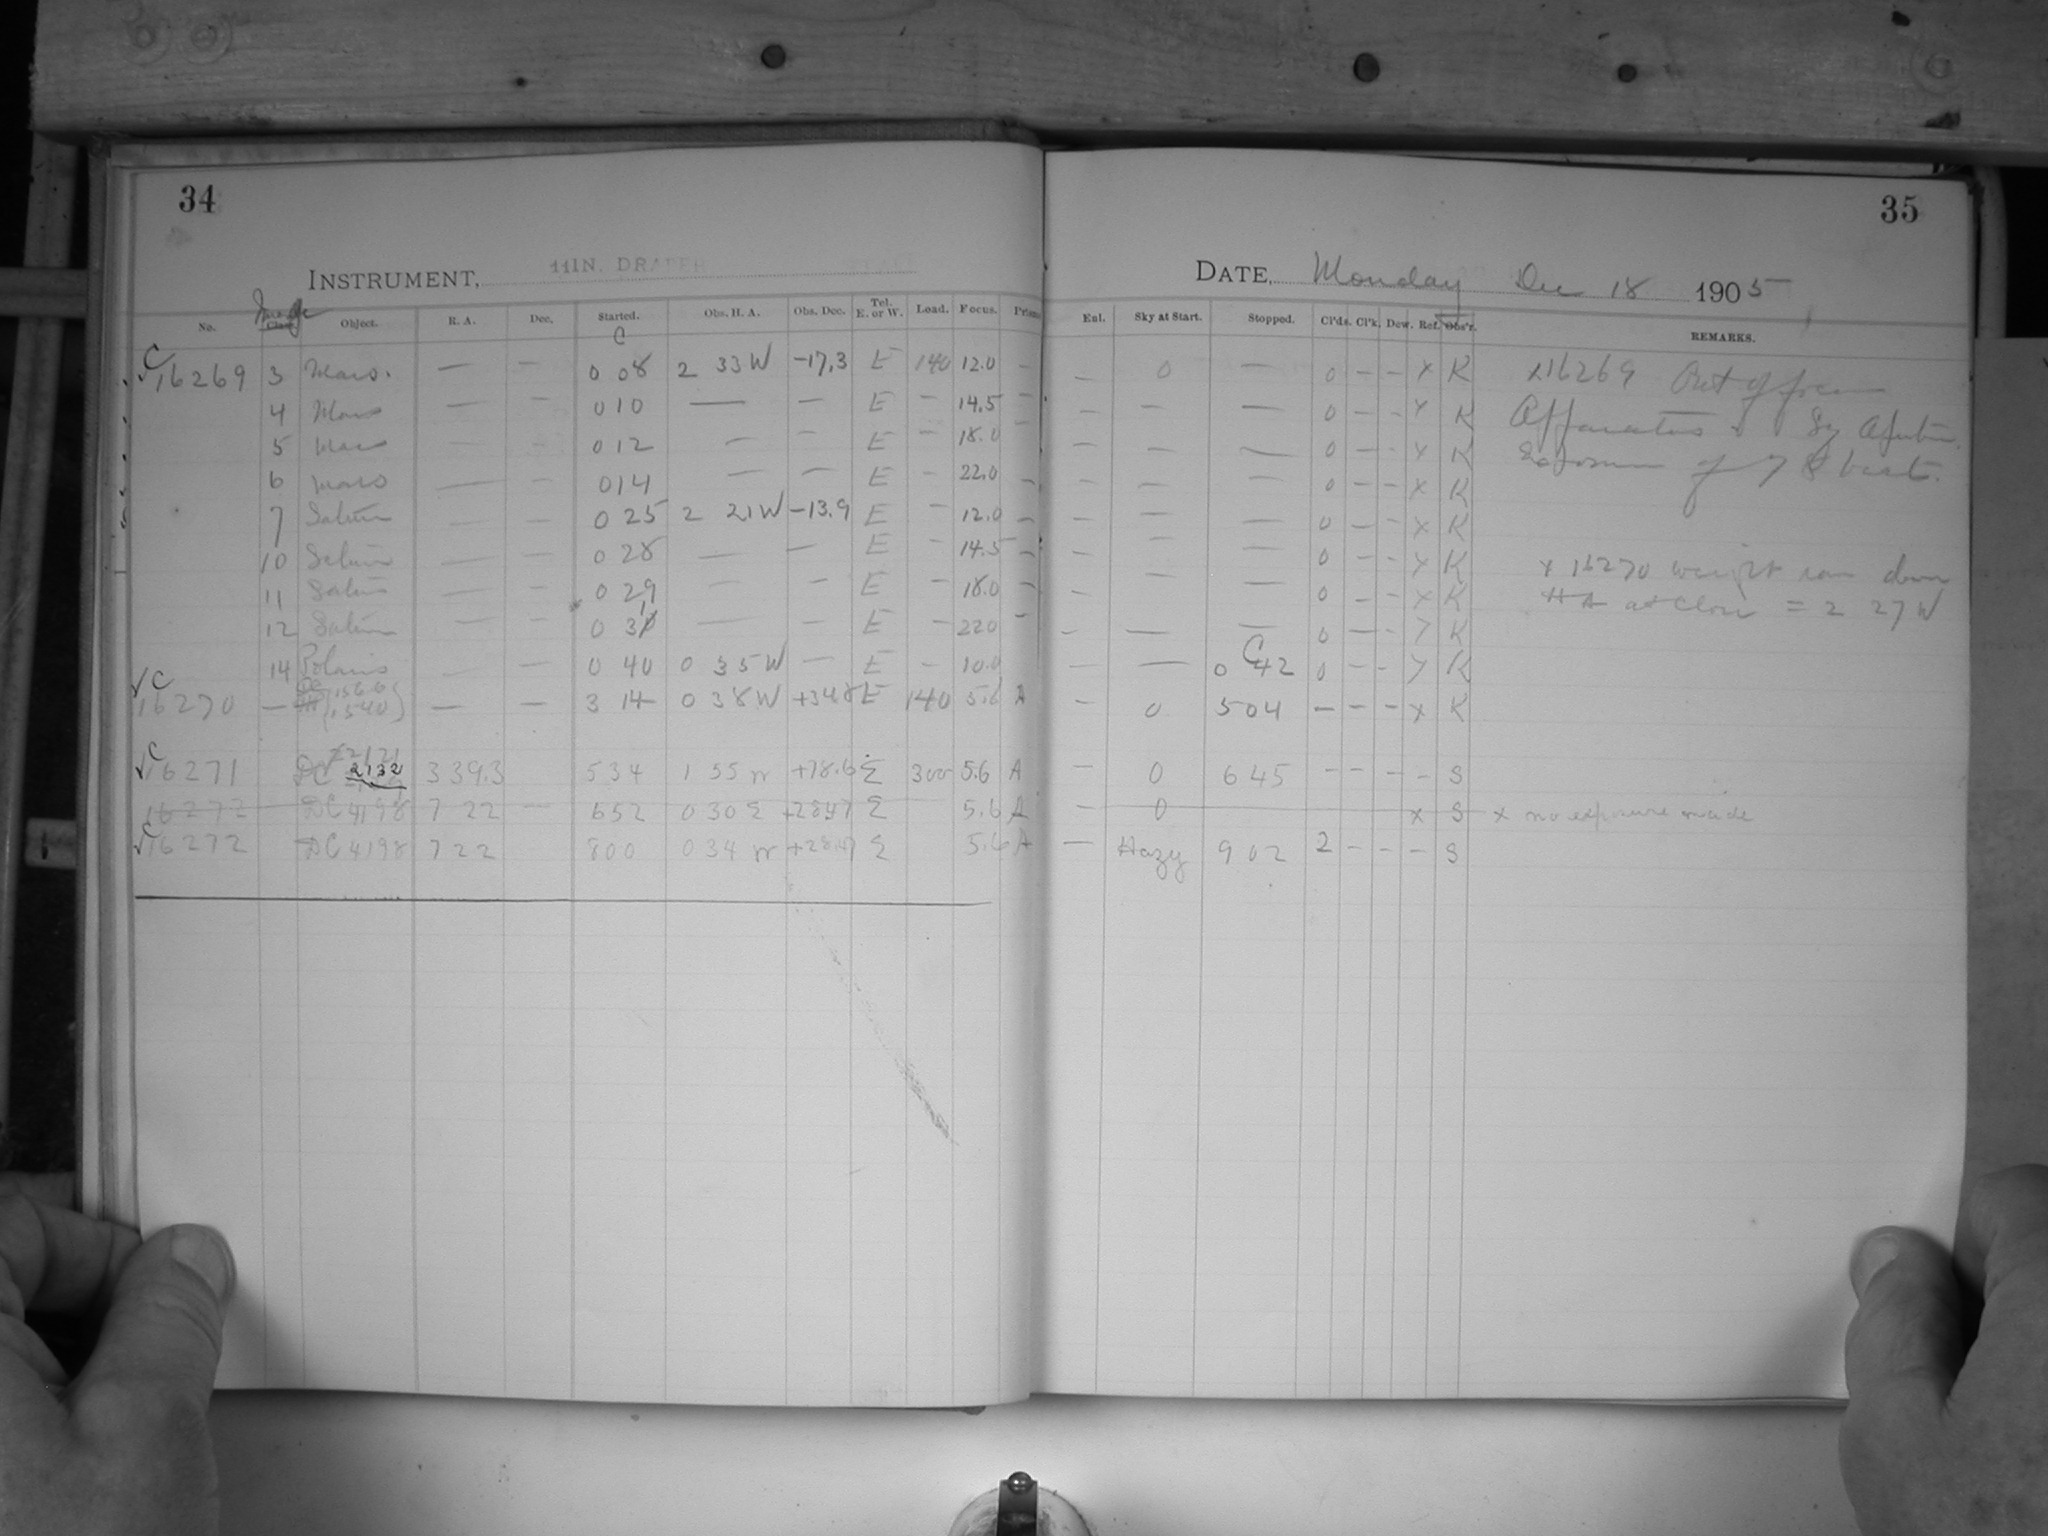 34
35
INSTRUMENT, 11IN. DRAPER
DATE, Monday Dec 18 1905
No. Image Object. R. A. Dec. Started. Obs. H. A. Obs. Dec. Tel. E. or W. Load. Focus. Prism Enl. Sky at Start. Stopped. Cl'ds. Cl'k. Dew. Ref. Obs'r. REMARKS.
C
√C 16269 3 Mars. — — 0 08 2 33 W -17.3 E 140 12.0 — — 0 — 0 - - x K x16269 Out of focus
4 Mars — — 0 10 — — E — 14.5 — — — — 0 - - x K Apparatus
5 Mars — — 0 12 — — E — 18.0 — — — — 0 - - x K of 7 & best.
6 Mars — — 0 14 — — E — 22.0 — — — — 0 - - x K
7 Saturn — — 0 25 2 21 W -13.9 E — 12.0 — — — — 0 - - x K
10 Saturn — — 0 28 — — E — 14.5 — — — — 0 - - x K x 16270 weight ran down
11 Saturn — — 0 29 — — E — 18.0 — — — — 0 - - x K HA at close = 2 27 W
12 Saturn — — 0 31 — — E — 22.0 — — — — 0 - - x K
14 Polaris — — 0 40 0 35 W — E — 10.0 — — C 0 42 0 - - x K
√C 16270 — — — 3 14 0 38 W +34.8 E 140 5.6 A — 0 5 04 - - - x K
√C 16271 DC 2132 3 39.3 5 34 1 55 W +78.6 E 300 5.6 A — 0 6 45 - - - - S
16272 DC 4198 7 22 — 6 52 0 30 E +28.47 E 5.6 A — 0 x S x no exposure made
√C 16272 DC 4198 7 22 8 00 0 34 W +28.47 E 5.6 A — Hazy 9 02 2 - - - S